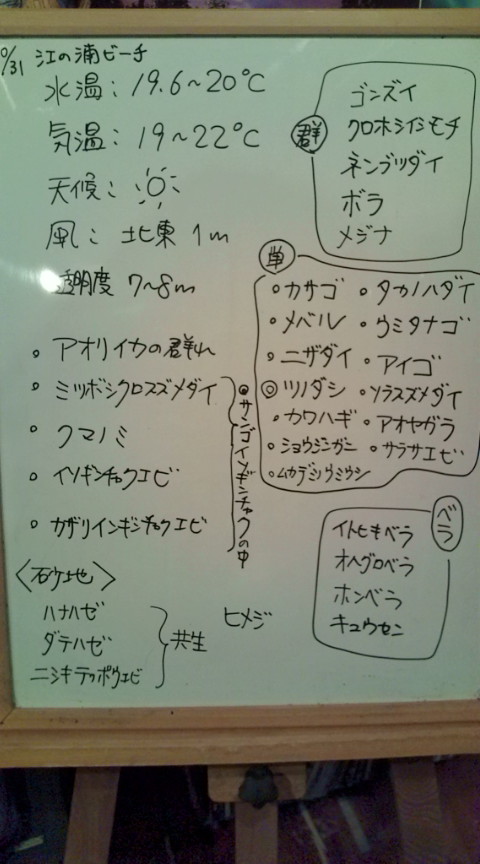 0/31 江の浦ビーチ
水温: 19.6~20℃
気温: 19~22℃
天候:
風: 北東 1m
透明度 7~8m
・アオリイカの群れ
・ミツボシクロスズメダイ
・クマノミ
・イソギンチャクエビ
・カザリイソギンチャクエビ
◉サンゴイソギンチャクの中
<砂地>
ハナハゼ
ダテハゼ
ニシキテッポウエビ
共生
ヒメジ
群
ゴンズイ
クロホシイシモチ
ネンブツダイ
ボラ
メジナ
単
・カサゴ ・タカノハダイ
・メバル ・ウミタナゴ
・ニザダイ ・アイゴ
◎ツノダシ ・ソラスズメダイ
・カワハギ ・アオヤガラ
・ショウジンガニ ・サラサエビ
・ムカデミノウミウシ
ベラ
イトヒキベラ
オハグロベラ
ホンベラ
キュウセン